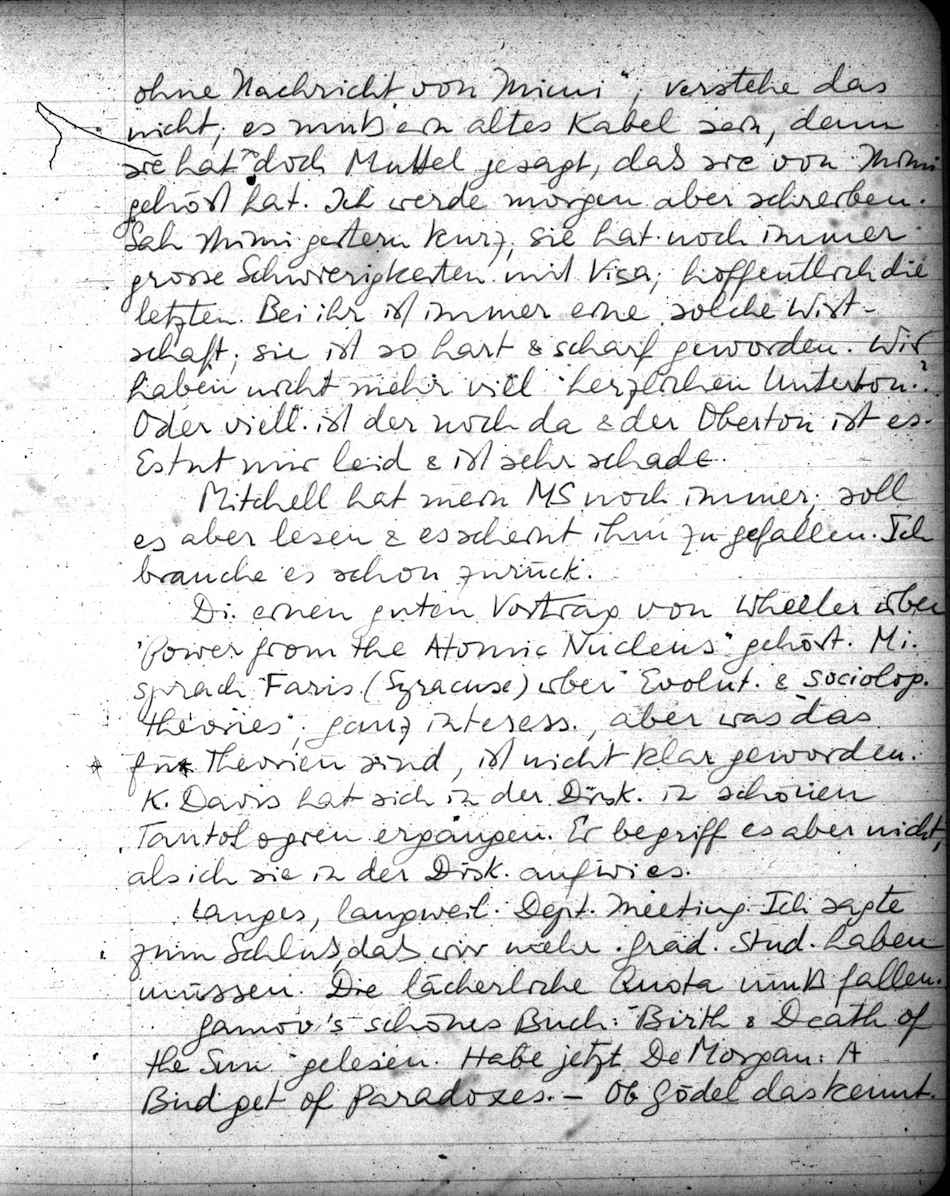 ohne Nachricht von Mimi", verstehe das
nicht; es muß ein altes Kabel sein, denn
sie hat doch Muttel gesagt, daß sie von Mimi
gehört hat. Ich werde morgen aber schreiben.
Sah Mimi gestern kurz; sie hat noch immer
grosse Schwierigkeiten mit Visa; hoffentlich die
letzten. Bei ihr ist immer eine solche Wirt-
schaft; sie ist so hart & scharf geworden. Wir
haben nicht mehr viel herzlichen Unterton.?
Oder viell. ist der noch da & der Oberton ist es.
Es tut mir leid & ist sehr schade.
Mitchell hat mein MS noch immer; soll
es aber lesen & es scheint ihm zu gefallen. Ich
brauche es schon zurück.
Di. einen guten Vortrag von Wheeler über
"Power from the Atomic Nucleus" gehört. Mi.
sprach Faris (Syracuse) über "Evolut. & Sociolog.
theories"; ganz interess., aber was das
* für Theorien sind, ist nicht klar geworden.
K. Davis hat sich in der Disk. in schönen
Tautologien ergangen. Er begriff es aber nicht,
als ich sie in der Disk. aufwies.
Langes, langweil. Dept. Meeting. Ich sagte
zum Schluß, daß wir mehr grad. Stud. haben
müssen. Die lächerliche Quota muß fallen.
Gamov's schönes Buch: "Birth & Death of
the Sun" gelesen. Habe jetzt De Morgan: A
Budget of Paradoxes. – Ob Gödel das kennt.